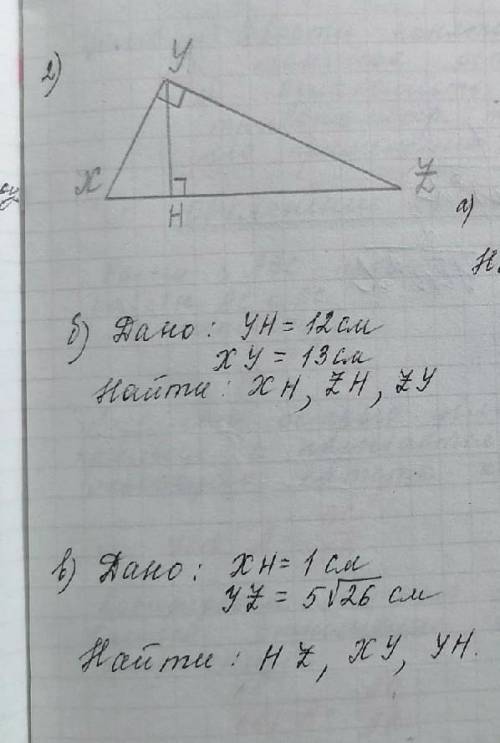 2)
У
X
Z
H
a)
H.
б) Дано: YH = 12 см
XY = 13 см
Найти: XH, ZH, ZY
в) Дано: XH = 1 см
YZ = 5√26 см
Найти: HZ, XY, YH.